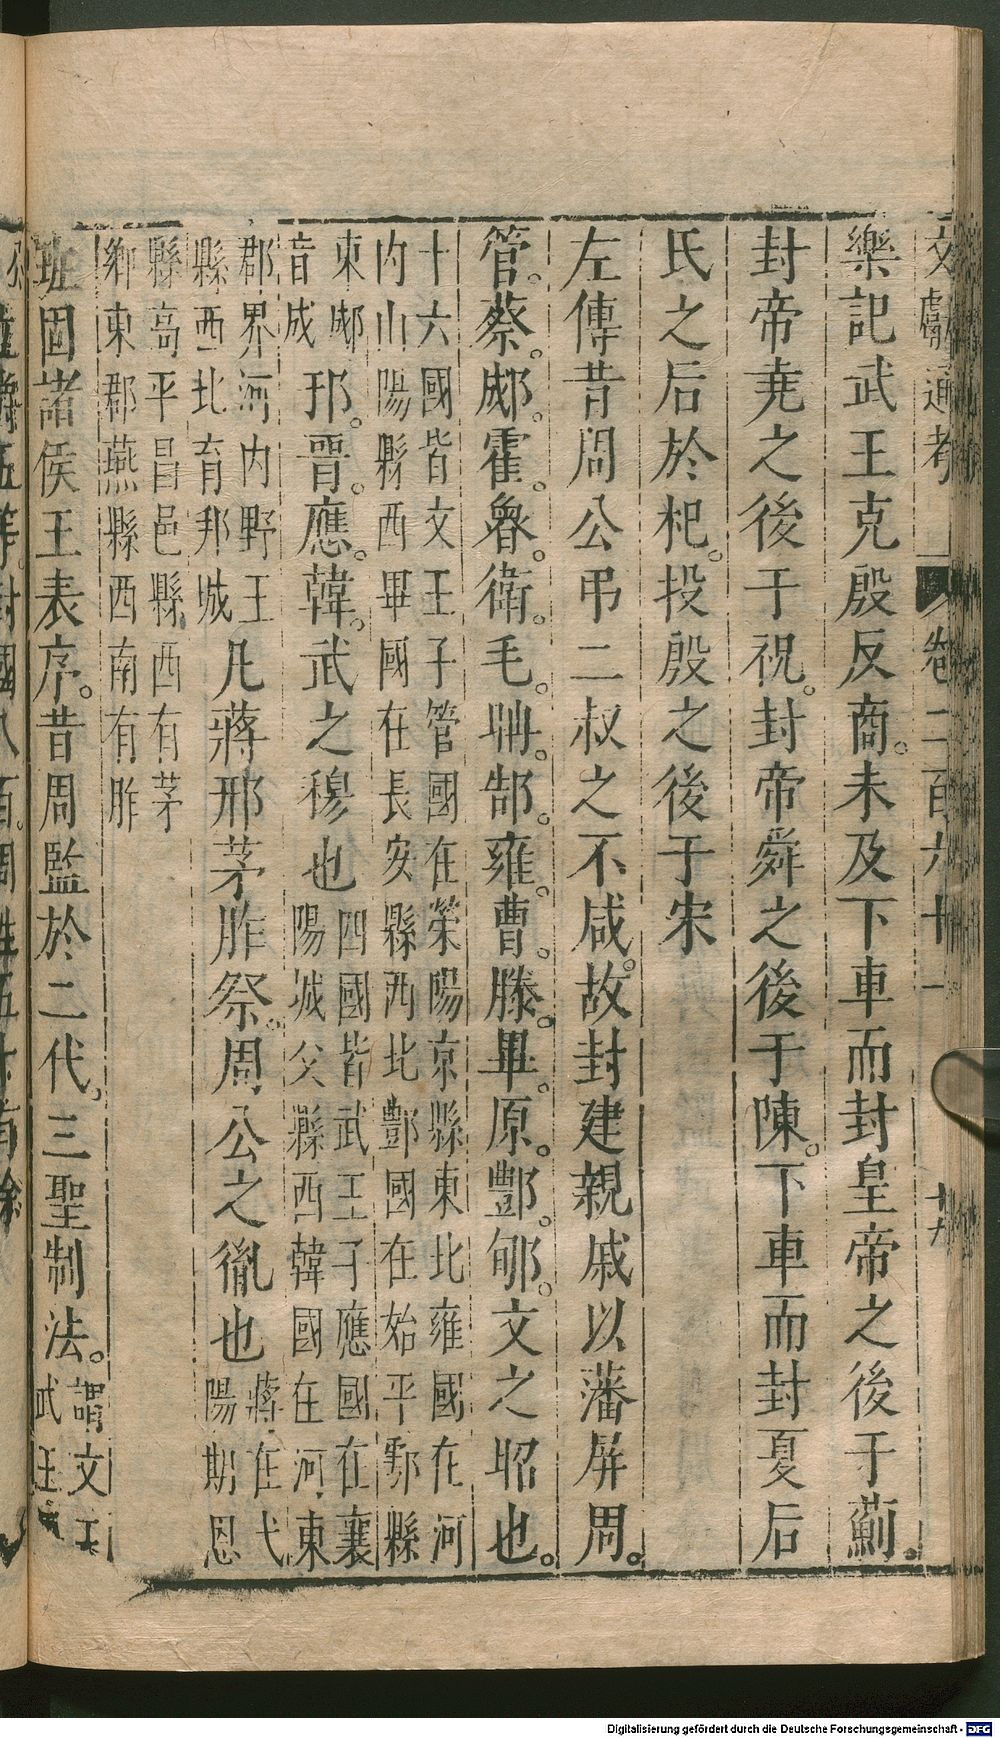 文獻通考 卷二百六十一 十六
樂記武王克殷反商。未及下車而封皇帝之後于薊。
封帝堯之後于祝。封帝舜之後于陳。下車而封夏后
氏之后於杞。投殷之後于宋
左傳昔周公弔二叔之不咸。故封建親戚以藩屏周。
管。蔡。郕。霍。魯。衛。毛。聃。郜。雍。曹。滕。畢。原。酆。郇。文之昭也。
十六國皆文王子管國在滎陽京縣東北雍國在河
內山陽縣西畢國在長安縣西北酆國在始平鄠縣
東郕
音成
邘。晋。應。韓。武之穆也
四國皆武王子應國在襄
陽城父縣西韓國在河東
郡界河內野王
縣西北有邘城
凡蔣邢茅胙祭。周公之胤也
蔣在弋
陽期思
縣高平昌邑縣西有茅
鄉東郡燕縣西南有胙
班固諸侯王表序。昔周監於二代。三聖制法。
謂文王
武王
五等。封國八百。同姓五十有餘
Digitalisierung gefördert durch die Deutsche Forschungsgemeinschaft - DFG